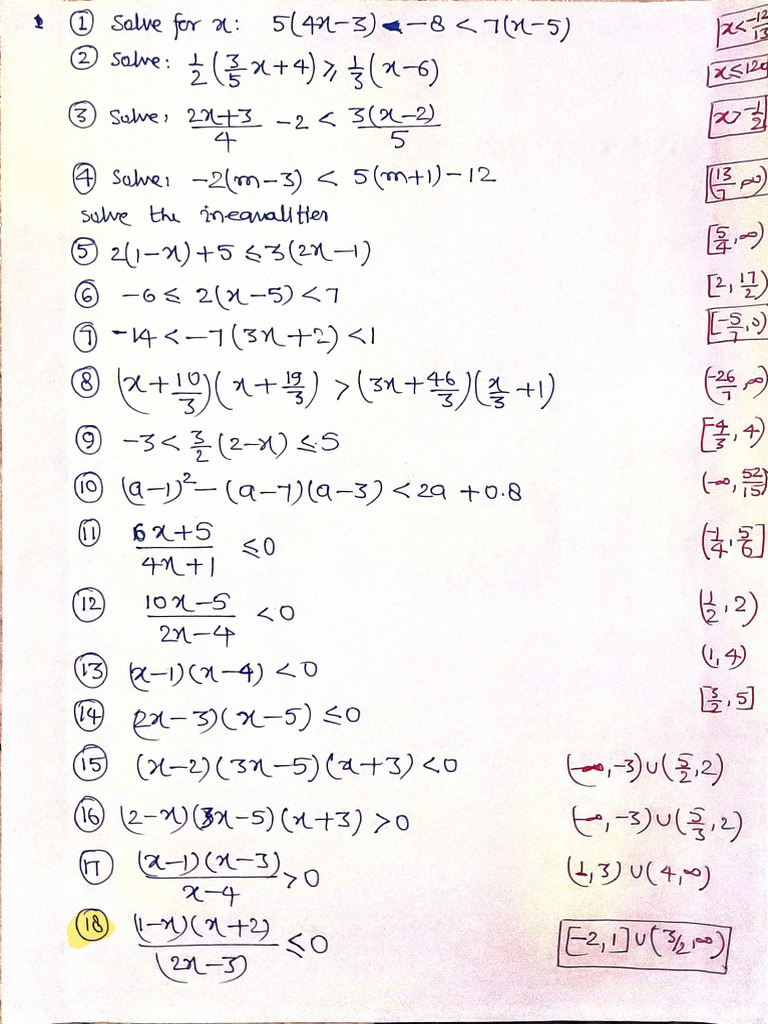 ① Solve for x: 5(4x-3) - -8 < 7(x-5) x<-12/13
② Solve: 1/2(3/5x+4) ⩾ 1/3(x-6) x≤120
③ Solve, (2x+3)/4 -2 < 3(x-2)/5 x>-1/2
④ Solve, -2(m-3) < 5(m+1)-12 (13/7,∞)
solve the inequalities
⑤ 2(1-x)+5 ≤ 3(2x-1) [5/4,∞)
⑥ -6 ≤ 2(x-5) < 7 [2, 17/2)
⑦ -14 < -7(3x+2) < 1 [-5/7,0)
⑧ (x+10/3)(x+19/3) > (3x+46/3)(x/3+1) (-26/7,∞)
⑨ -3 < 3/2(2-x) ≤ 5 [-4/3,4)
⑩ (a-1)²-(a-7)(a-3) < 2a+0.8 (-∞,52/15)
⑪ (6x+5)/(4x+1) ≤ 0 (-1/4,5/6]
⑫ (10x-5)/(2x-4) < 0 (1/2,2)
⑬ (x-1)(x-4) < 0 (1,4)
⑭ (2x-3)(x-5) ≤ 0 [3/2,5]
⑮ (x-2)(3x-5)(x+3) < 0 (-∞,-3)∪(5/2,2)
⑯ (2-x)(3x-5)(x+3) > 0 (-∞,-3)∪(5/3,2)
⑰ (x-1)(x-3)/(x-4) > 0 (1,3)∪(4,∞)
⑱ (1-x)(x+2)/(2x-3) ≤ 0 [-2,1]∪(3/2,∞)